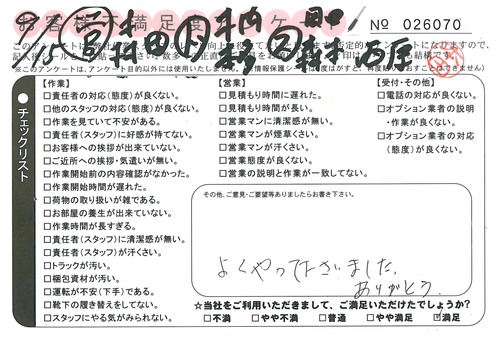 お客様不満足度アンケート
No 026070
9/5 営 村田 作
※このアンケートは、アンケート目的以外には使用いたしません。
チェックリスト
【作業】
□責任者の対応(態度)が良くない。
□他のスタッフの対応(態度)が良くない。
□作業を見ていて不安がある。
□責任者(スタッフ)に好感が持てない。
□お客様への挨拶が出来ていない。
□ご近所への挨拶・気遣いが無い。
□作業開始前の内容確認がなかった。
□作業開始時間が遅れた。
□荷物の取り扱いが雑である。
□お部屋の養生が出来ていない。
□作業時間が長すぎる。
□責任者(スタッフ)に清潔感が無い。
□責任者(スタッフ)が汗くさい。
□トラックが汚い。
□梱包資材が汚い。
□運転が不安(下手)である。
□靴下の履き替えをしてない。
□スタッフにやる気がみられない。
【営業】
□見積もり時間に遅れた。
□見積もり時間が長い。
□営業マンに清潔感が無い。
□営業マンが煙草くさい。
□営業マンが汗くさい。
□営業態度が良くない。
□営業の説明と作業が一致してない。
【受付・その他】
□電話の対応が良くない。
□オプション業者の説明
・作業が良くない。
□オプション業者の対応
(態度)が良くない。
その他、ご意見・ご要望等ありましたらお書き下さい。
よくやって下さいました。
ありがとう。
☆当社をご利用いただきまして、ご満足いただけたでしょうか?
□不満 □やや不満 □普通 □やや満足 ☑満足